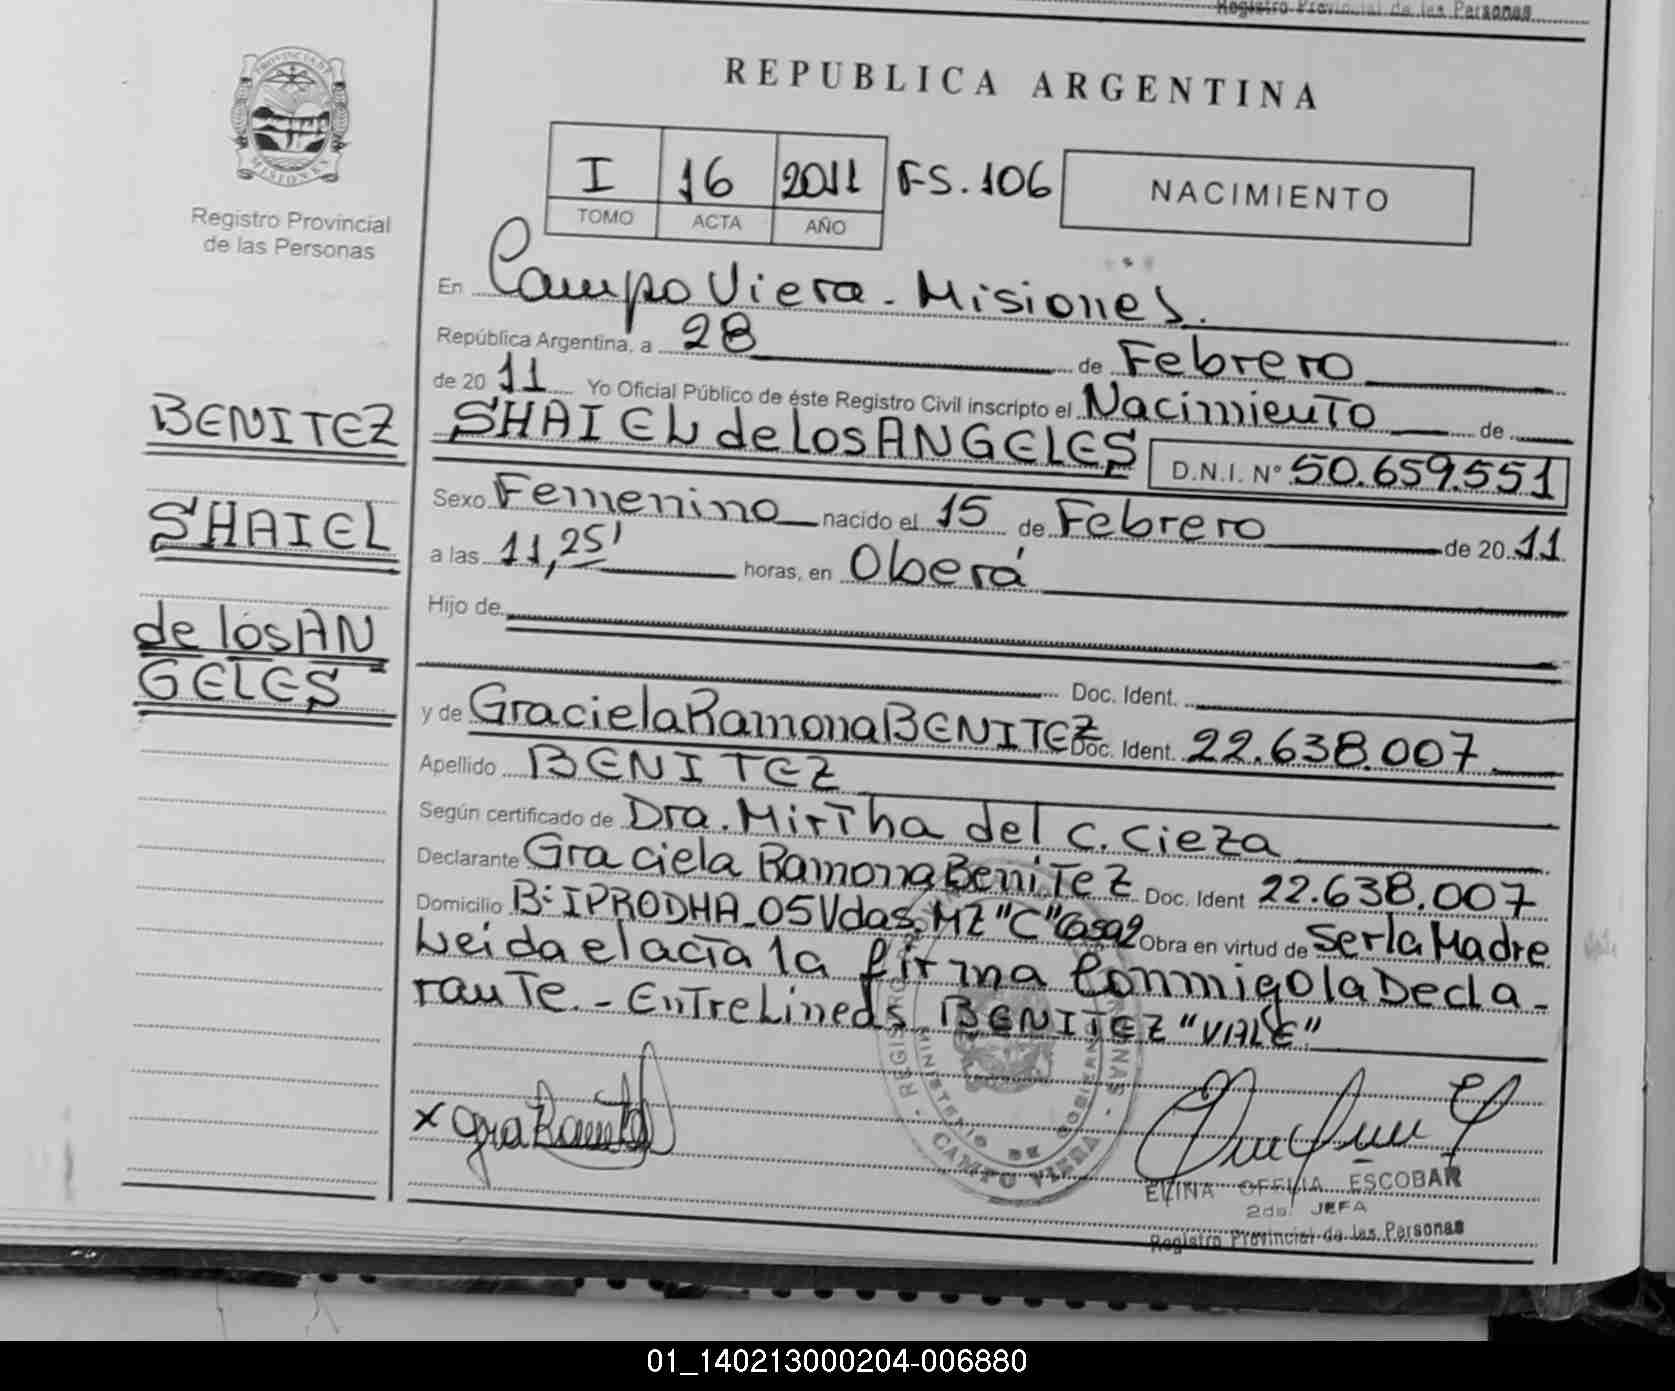 Registro Provincial de las Personas
PROVINCIA DE
MISIONES
Registro Provincial
de las Personas
REPUBLICA ARGENTINA
I 16 2011 FS.106
TOMO ACTA AÑO
NACIMIENTO
En Campo Viera - Misiones.
República Argentina, a 28 de Febrero
de 20 11 Yo Oficial Público de éste Registro Civil inscripto el Nacimiento de
SHAIEL de los ANGELES D.N.I. Nº 50.659.551
Sexo Femenino nacido el 15 de Febrero de 20 11
a las 11,25' horas, en Oberá
Hijo de
Doc. Ident.
y de Graciela Ramona BENITEZ Doc. Ident. 22.638.007
Apellido BENITEZ
Según certificado de Dra. Mirtha del C. Cieza
Declarante Graciela Ramona Benitez Doc. Ident 22.638.007
Domicilio Bº IPRODHA-05Vdas.MZ "C" Casa2 Obra en virtud de Ser la Madre
Leida el acta la firma Conmigo la Decla-
rante.- EntreLineas BENITEZ "VALE"
BENITEZ
SHAIEL
de los AN
GELES
x
MINISTERIO DE GOBIERNO
CAMPO VIERA
ELINA OFELIA ESCOBAR
2da. JEFA
Registro Provincial de las Personas
01_140213000204-006880